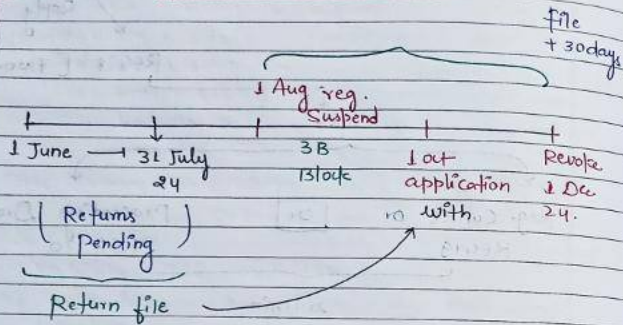 file
+ 30 days
1 Aug reg.
Suspend
1 June → 31 July
24
3B
Block
1 oct
application
with
Revoke
1 Dec
24.
( Returns
pending )
Return file